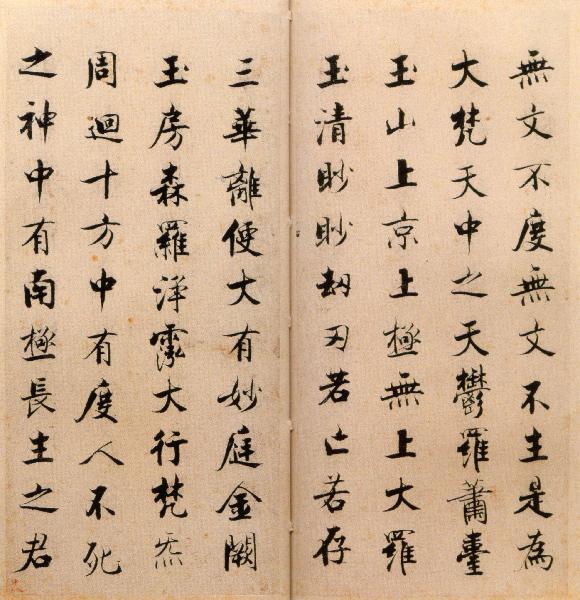 無文不度無文不生是為
大梵天中之天鬱羅蕭臺
玉山上京上極無上大羅
玉清眇眇刼刃若亡若存
三華離便大有妙庭金闕
玉房森羅淨霐大行梵炁
周迴十方中有度人不死
之神中有南極長生之君